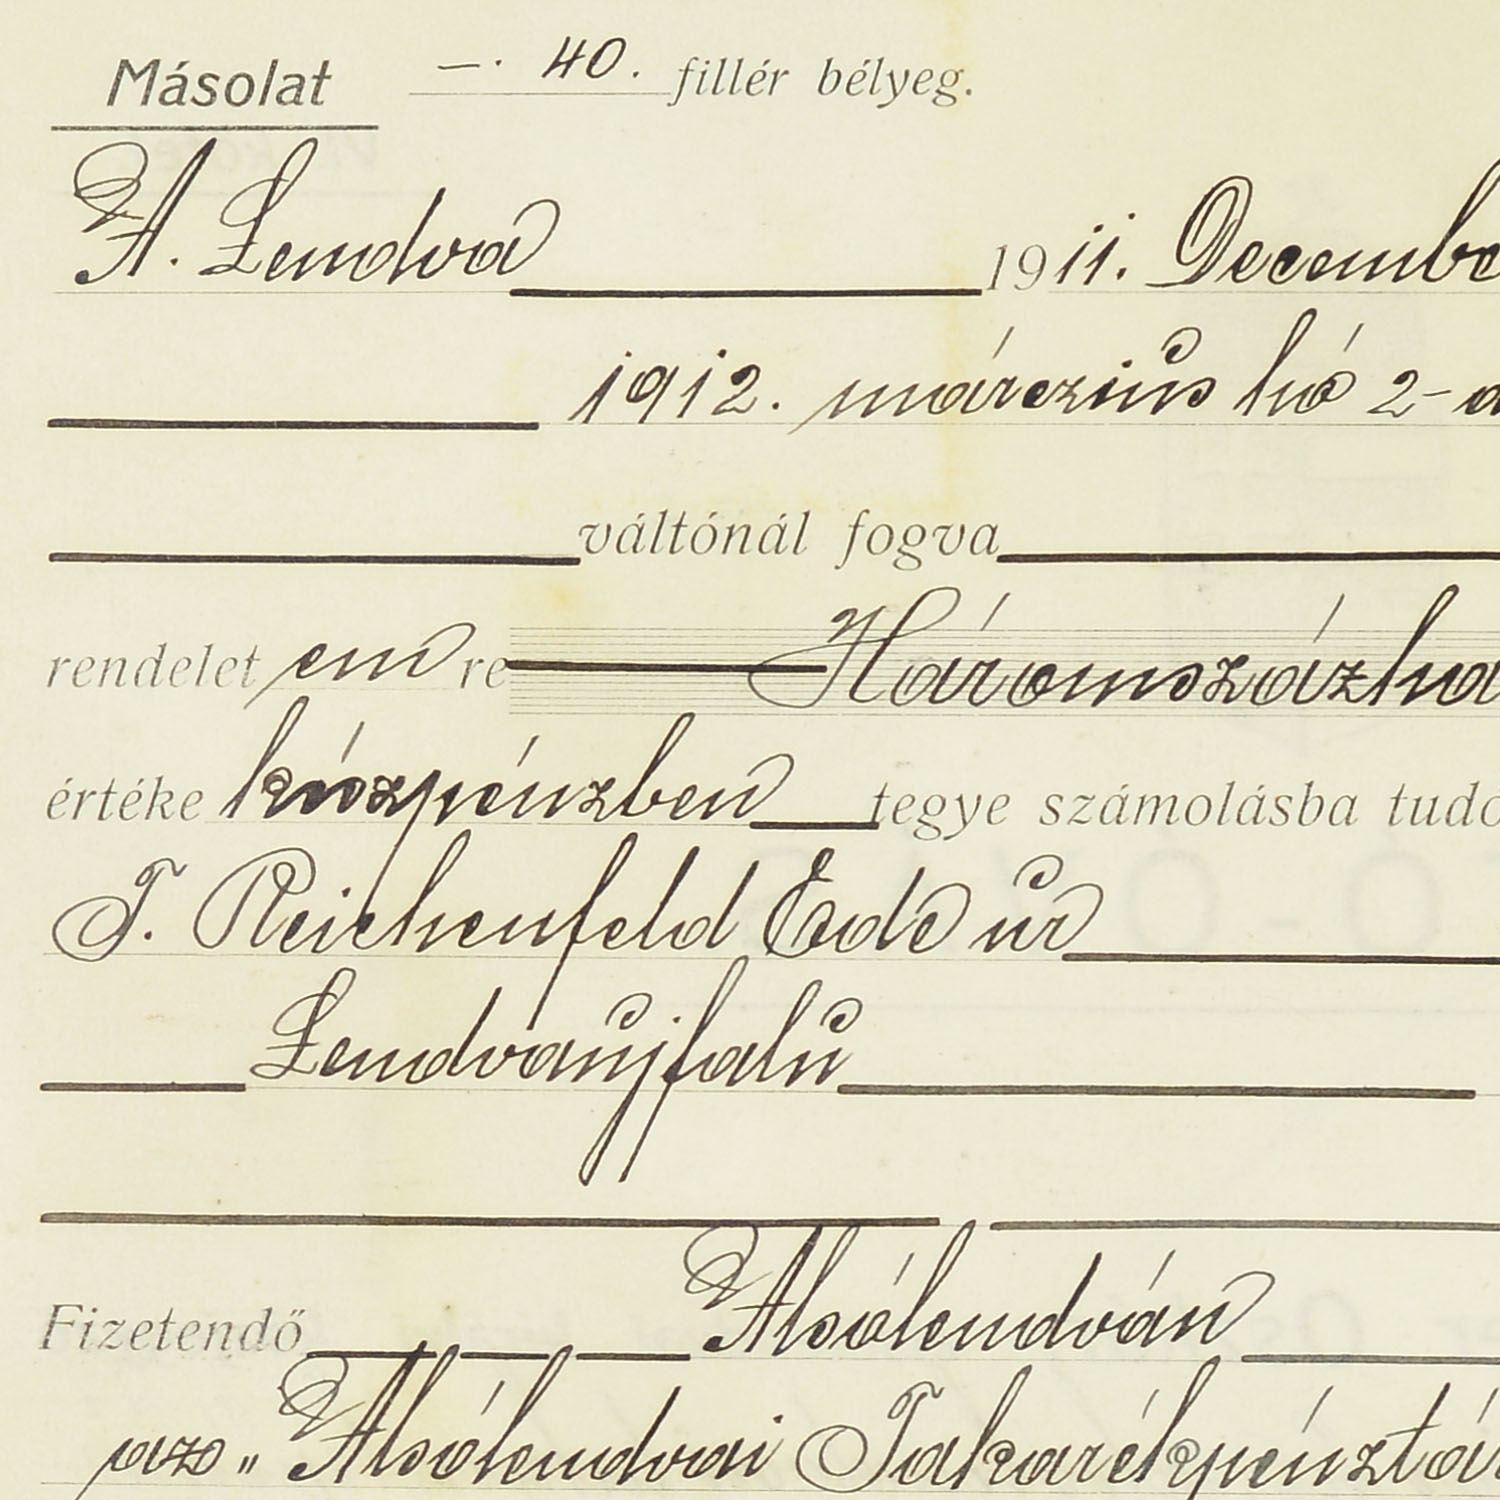 Másolat —. 40. fillér bélyeg.
A. Lendva 1911. Decembe
1912. márczius hó 2-a
váltónál fogva
rendelet em re Háromszázha
értéke készpénzben tegye számolásba tudó
T. Reichenfeld Ede úr
Lendvaujfalu
Fizetendő Alsólendván
az „Alsólendvai Takarékpénztár